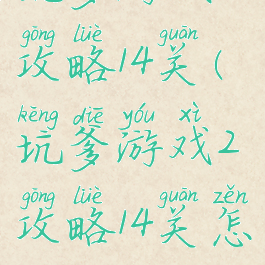 gōng lüè guān
攻略14关(
kēng diē yóu xì
坑爹游戏2
gōng lüè guān zěn
攻略14关怎